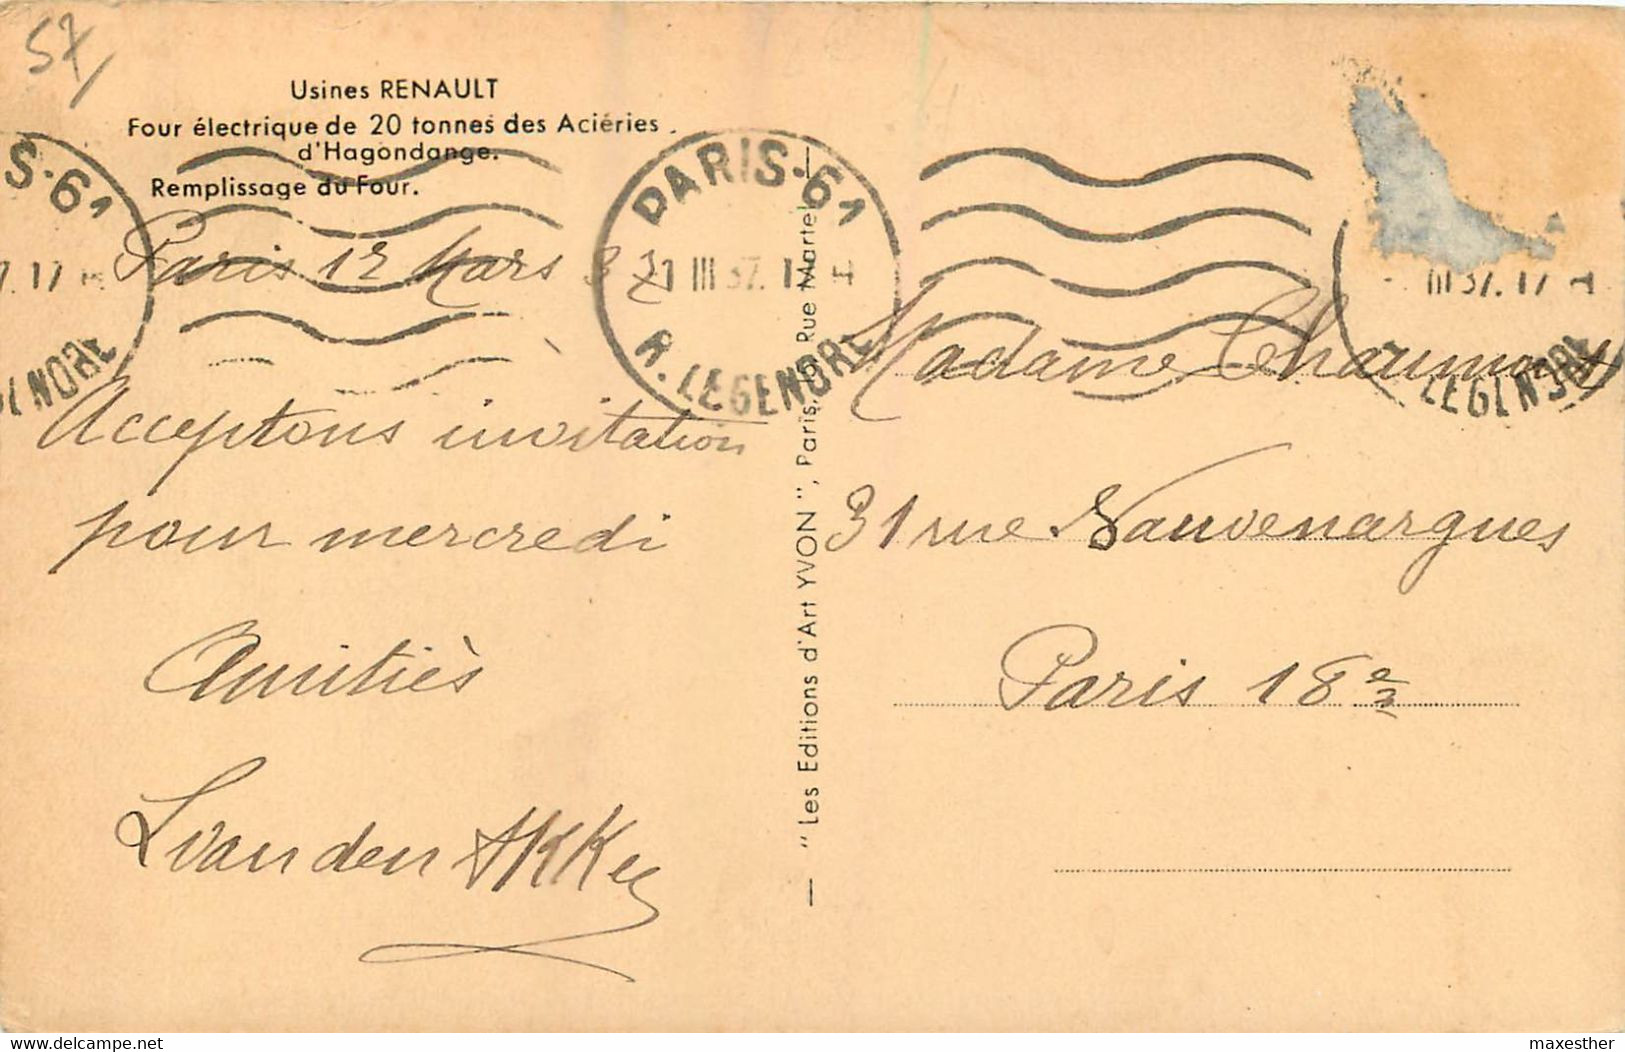 57
Usines RENAULT
Four électrique de 20 tonnes des Aciéries
d'Hagondange.
Remplissage du Four.
S-61
7. 17 H
PARIS-61
III 37. 1 H
R. LEGENDRE
III 37. 17 H
LEGENDRE
Paris 12 Mars 37
Acceptons invitation
pour mercredi
Amitiès
L van den
"Les Editions d'Art YVON", Paris, 10, Rue Martel
Madame
31 rue Vauvenargues
Paris 18e
Delcampe.net
maxesther